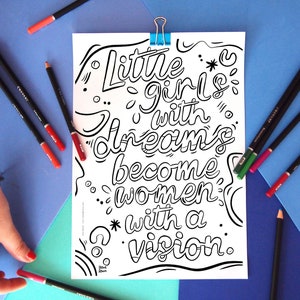 Little
girls
with
dreams
become
women
with a
vision.